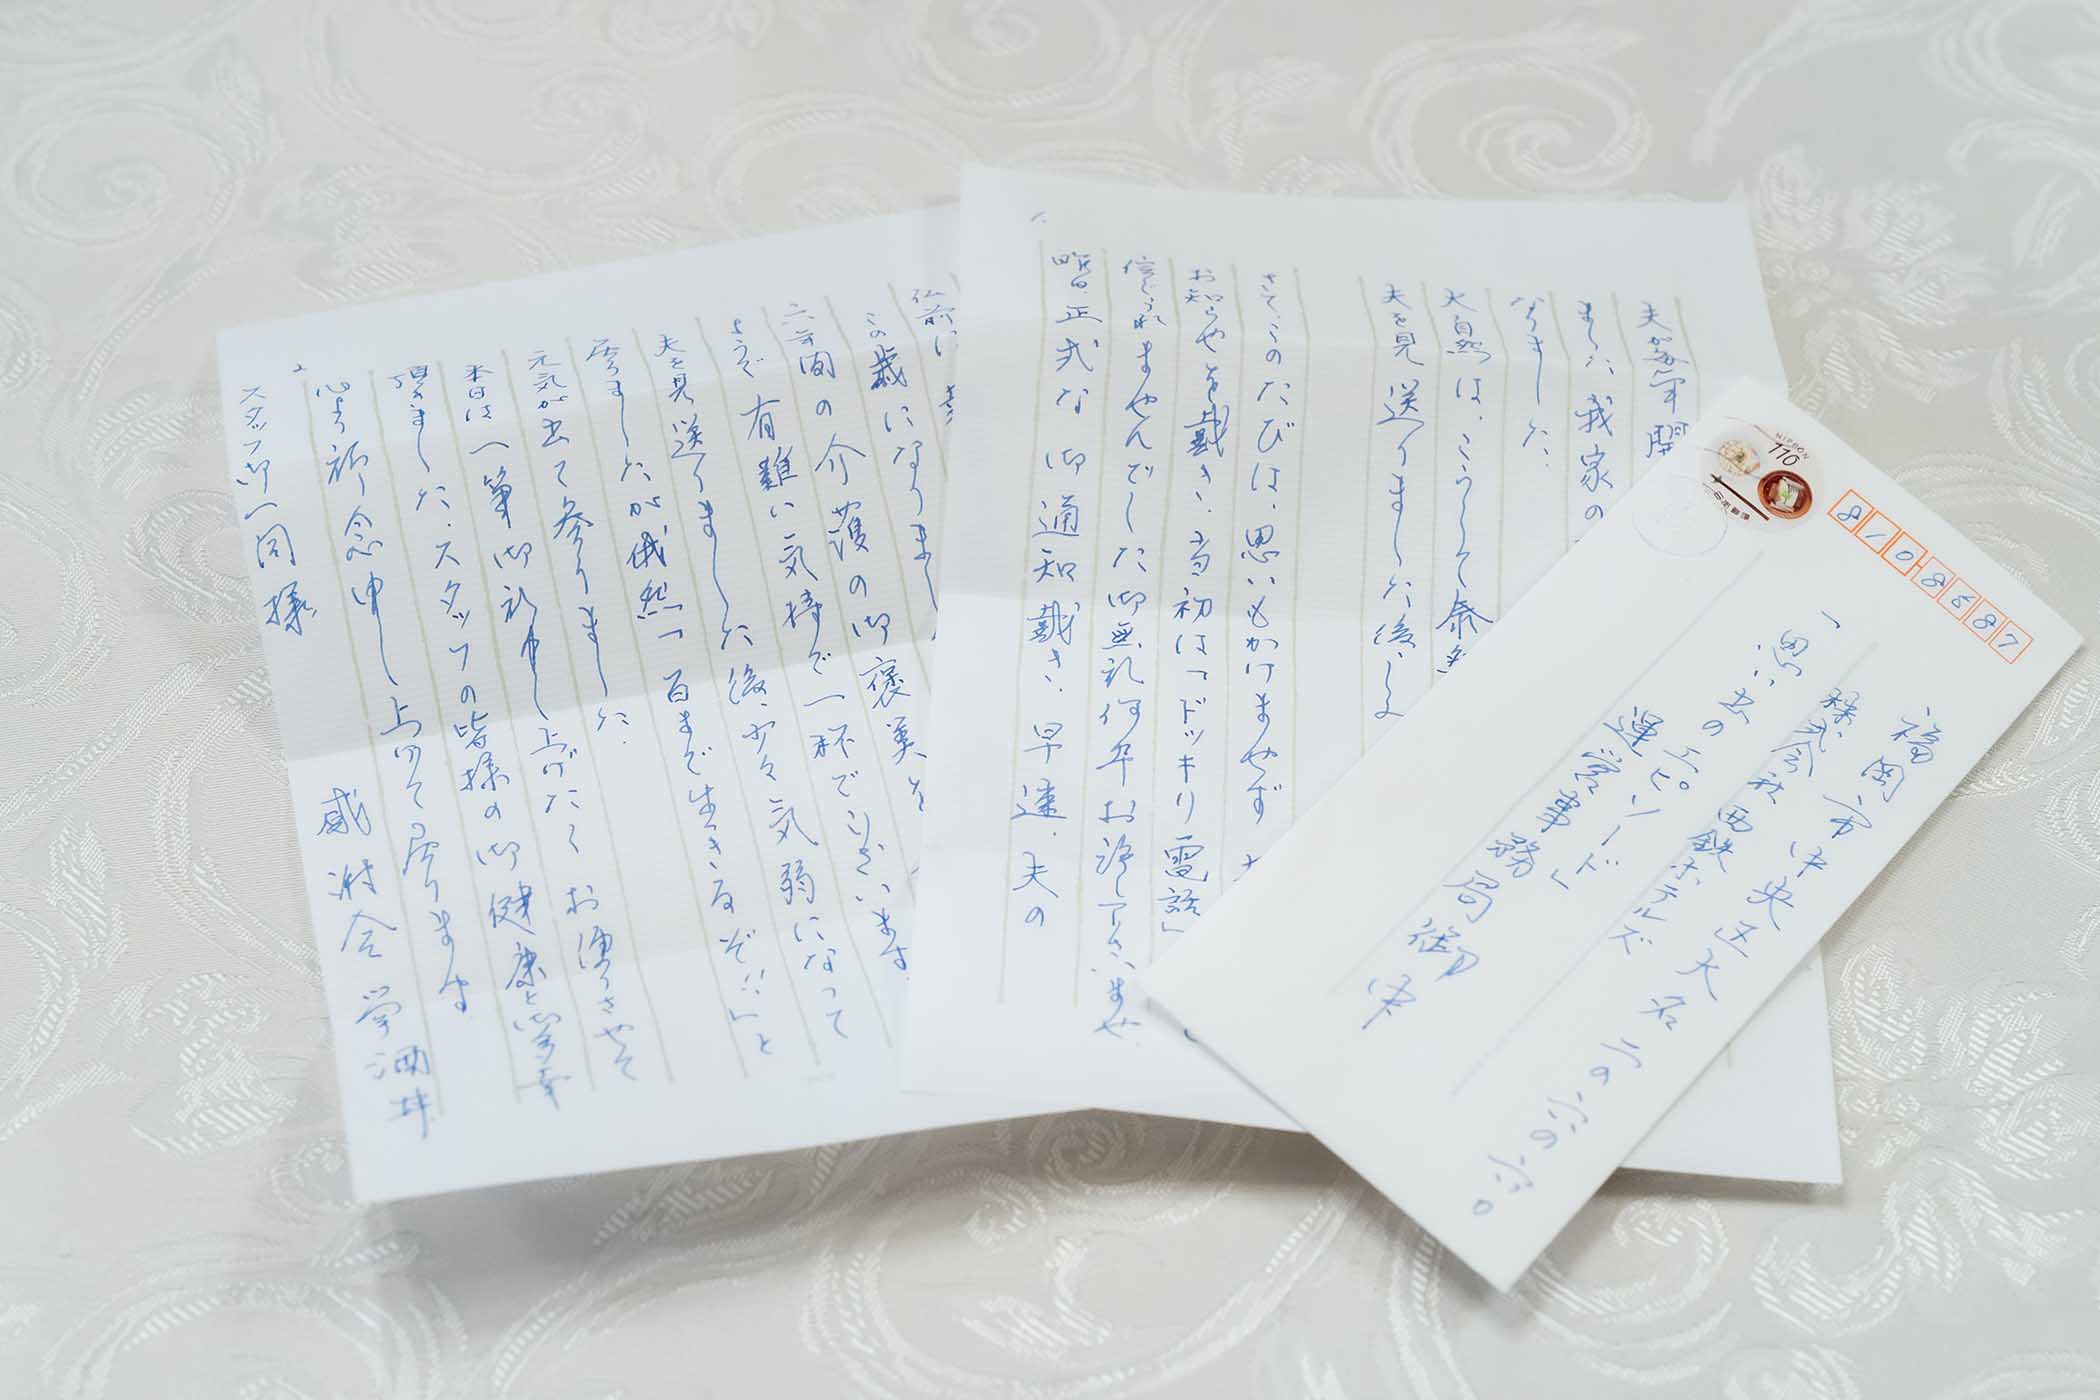 夫が毎年開
ました我家の
なりました.
大自然は、こうして
夫を見送りました後、
さて、このたびは、思いもかけませず
お知らせを戴き、当初は「ドッキリ電話」
信じられませんでした御無礼何卒お許し下さいませ.
昨日、正式な御通知戴き、早速、夫の
仏前に
この歳になりまし
六年間の介護の御褒美を
ようで有難い気持で一杯でございます.
夫を見送りました後、少々気弱になって
居りましたが俄然「百まで生きるぞ!!」と
元気が出て参りました.
本日は一筆御礼申し上げたくお便りさせて
頂きました.スタッフの皆様の御健康と御多幸
心より祈念申し上げて居ります
スタッフ御一同様
NIPPON
110
日本郵便
8108687
福岡市中央区大名二の六の六〇
株式会社西鉄ホテルズ
「思い出のエピソード」
運営事務局御中